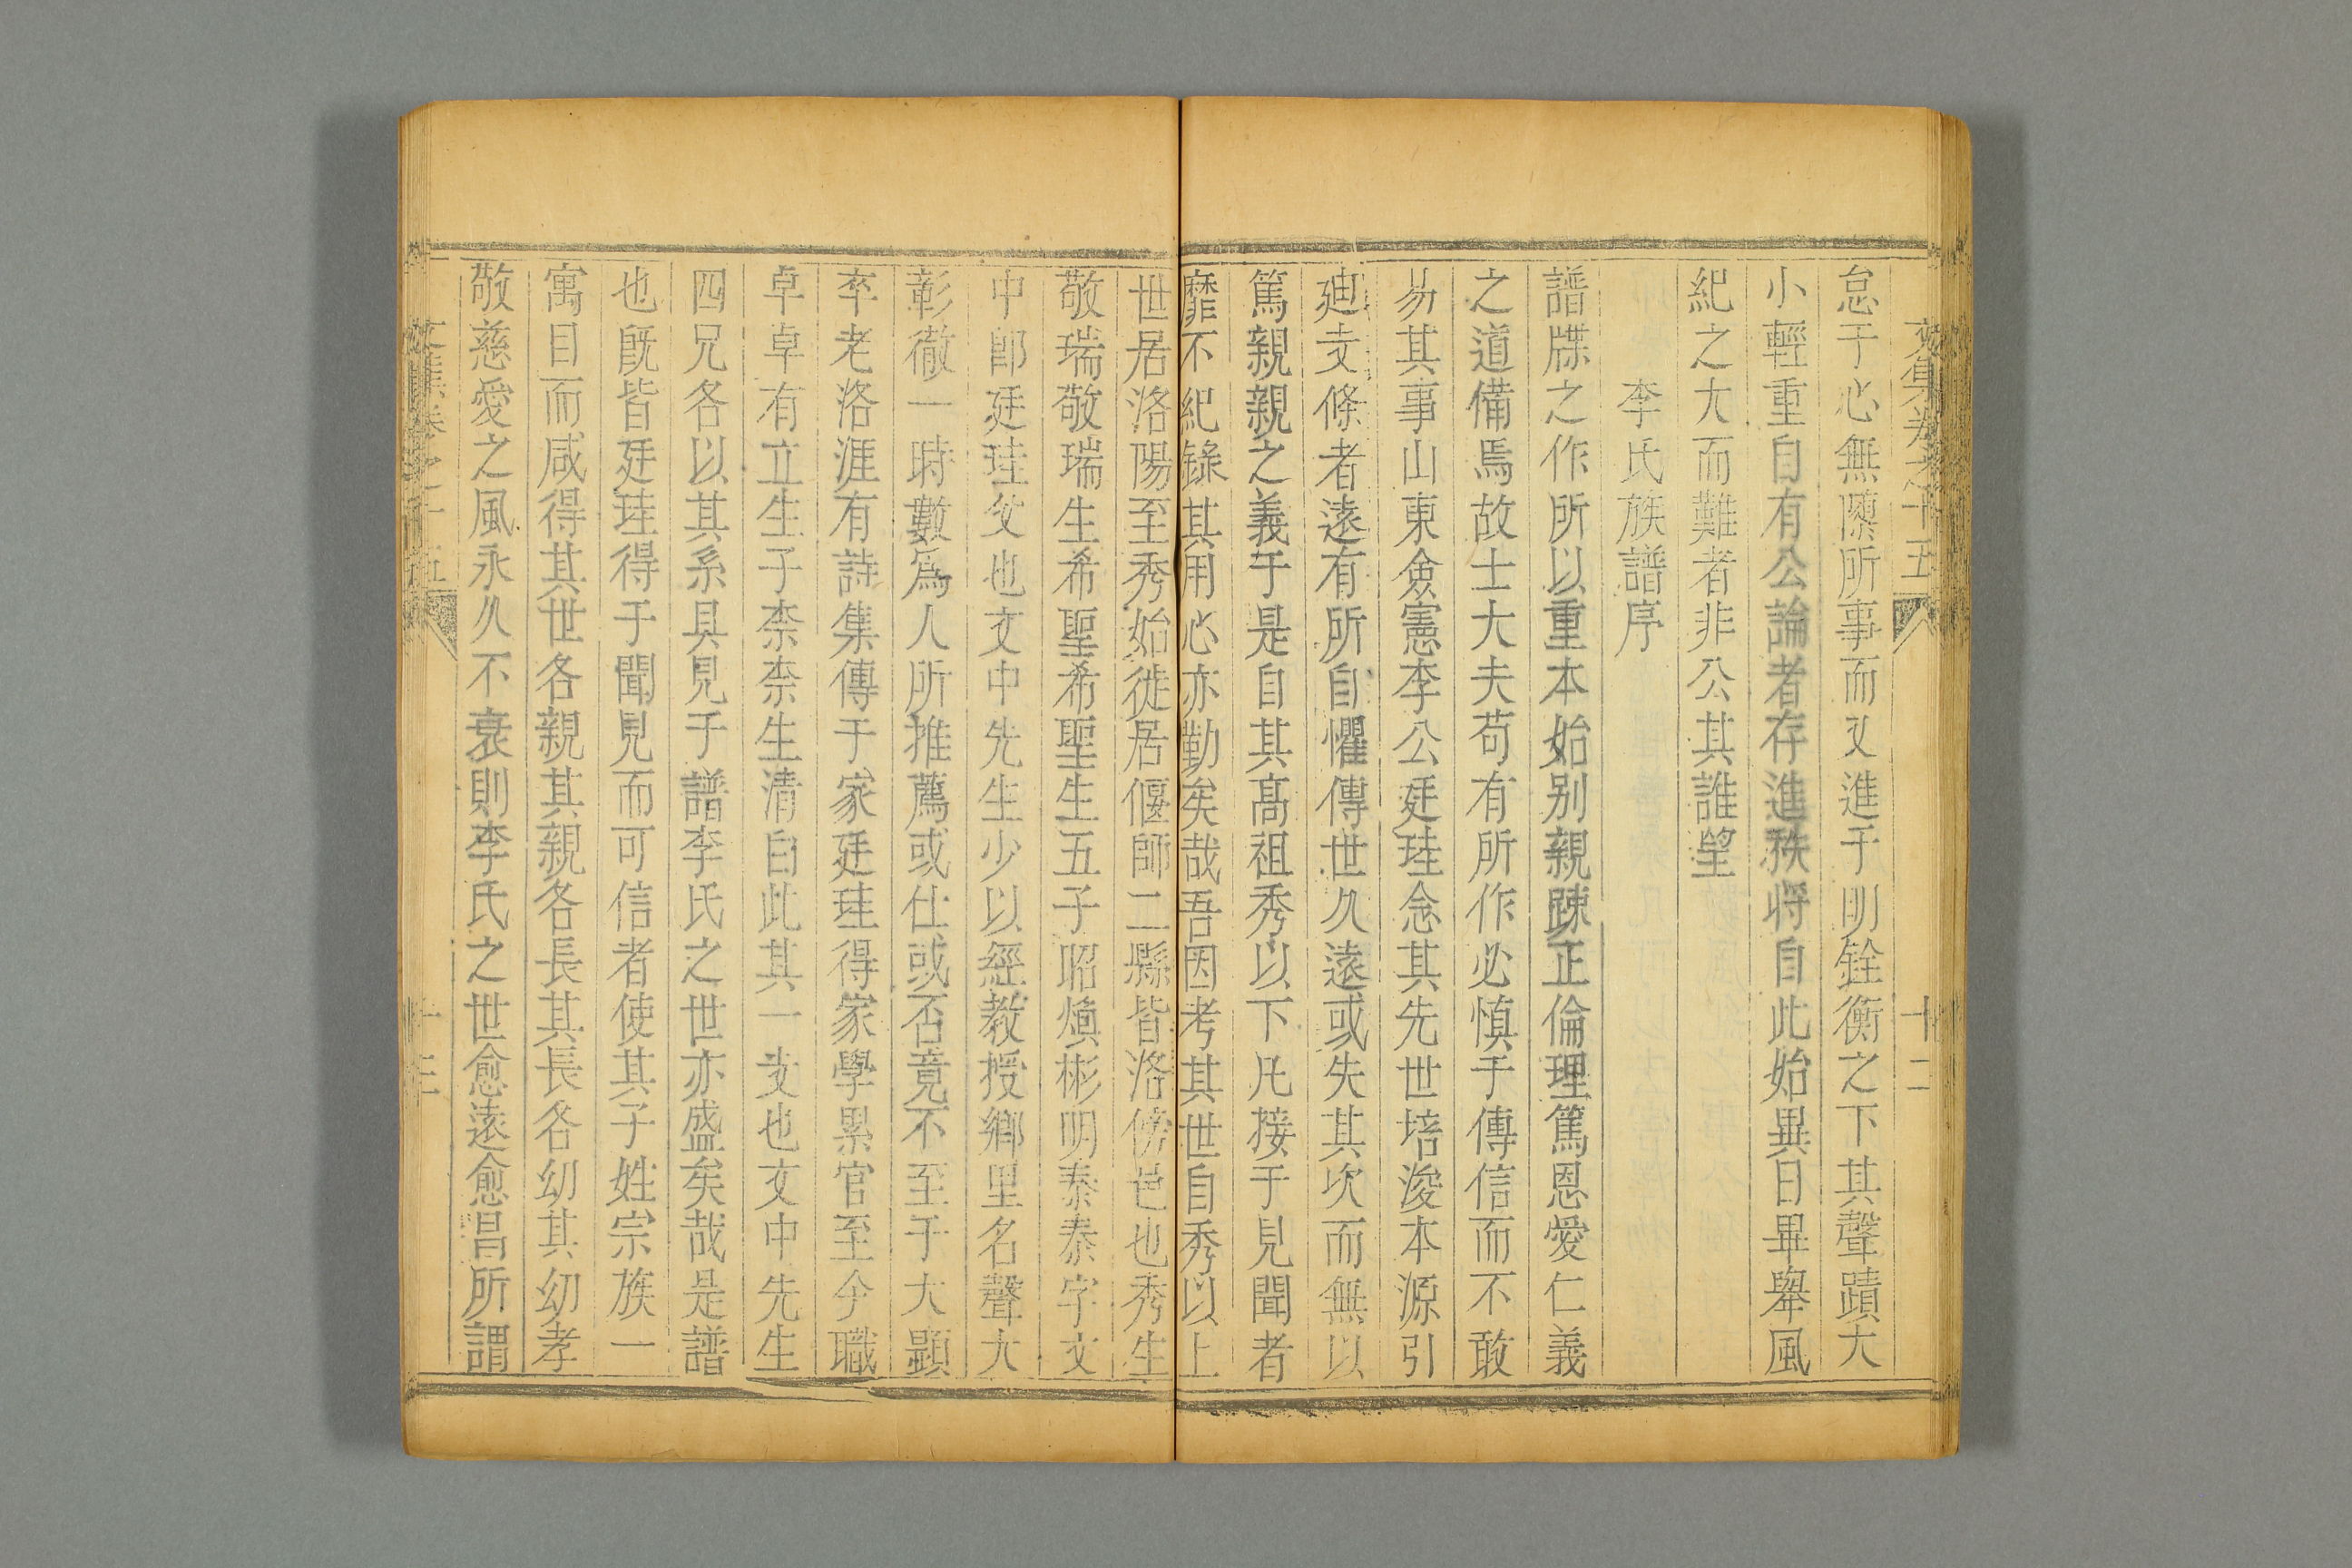 文集卷之十五 十二
怠于心無隳所事而又進于明銓衡之下其聲蹟大
小輕重自有公論者存進秩將自此始異日畢舉風
紀之大而難者非公其誰望
李氏族譜序
譜牒之作所以重本始别親踈正倫理篤恩愛仁義
之道備焉故士大夫苟有所作必慎于傳信而不敢
易其事山東僉憲李公廷珪念其先世培浚本源引
廸支條者遠有所自懼傳世久遠或失其次而無以
篤親親之義于是自其髙祖秀以下凡接于見聞者
靡不紀錄其用心亦勤矣哉吾因考其世自秀以上
世居洛陽至秀始徙居偃師二縣皆洛傍邑也秀生
敬瑞敬瑞生希聖希聖生五子昭煥彬明泰泰字文
中郎廷珪父也文中先生少以經教授鄉里名聲大
彰徹一時數爲人所推薦或仕或否竟不至于大顯
卒老洛涯有詩集傳于家廷珪得家學累官至今職
卓卓有立生子柰柰生清自此其一支也文中先生
四兄各以其系具見于譜李氏之世亦盛矣哉是譜
也旣皆廷珪得于聞見而可信者使其子姓宗族一
寓目而咸得其世各親其親各長其長各幼其幼孝
敬慈愛之風永久不衰則李氏之世愈遠愈昌所謂
文集卷之十五